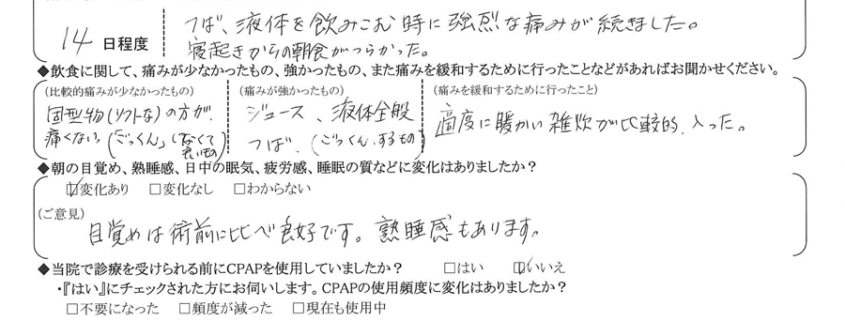 14 日程度
つば、液体を飲みこむ時に強烈な痛みが続きました。
寝起きからの朝食がつらかった。
◆飲食に関して、痛みが少なかったもの、強かったもの、また痛みを緩和するために行ったことなどがあればお聞かせください。
(比較的痛みが少なかったもの)
固型物(ソフトな)の方が、
痛くない。(「ごっくん」しなくて
良いもの)
(痛みが強かったもの)
ジュース、液体全般
つば、(ごっくん、するもの)
(痛みを緩和するために行ったこと)
適度に暖かい雑炊が比較的、入った。
◆朝の目覚め、熟睡感、日中の眠気、疲労感、睡眠の質などに変化はありましたか？
☑変化あり □変化なし □わからない
(ご意見)
目覚めは術前に比べ良好です。熟睡感もあります。
◆当院で診療を受けられる前にCPAPを使用していましたか？ □はい ☑いいえ
・『はい』にチェックされた方にお伺いします。CPAPの使用頻度に変化はありましたか？
□不要になった □頻度が減った □現在も使用中